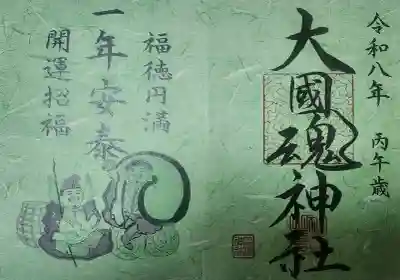 令和八年 丙午歳
大國魂神社
福徳円満
一年安泰
開運招福